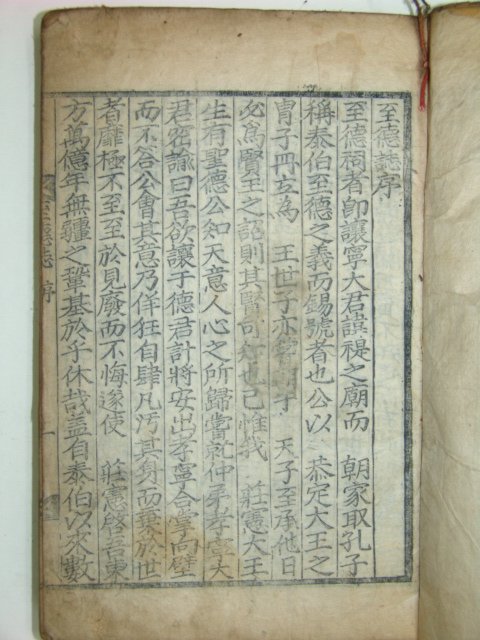 至德誌序
至德祠者卽讓寧大君諱禔之廟而 朝家取孔子
稱泰伯至德之義而錫號者也公以 恭定大王之
冑子冊立為 王世子亦 朝于 天子至承他日
必為賢王之 則其賢可知也已惟我 莊憲大王
生有聖德公知天意人心之所歸嘗就仲弟孝寧大
君密諭曰吾欲讓于德君計將安出孝寧合掌向壁
而不答公會其意乃佯狂自肆凡汚其身而棄於世
者靡極不至至於見廢而不悔遂使 莊憲啓吾東
方萬億年無疆之鞏基於乎休哉蓋自泰伯以來數
至德誌 序 一